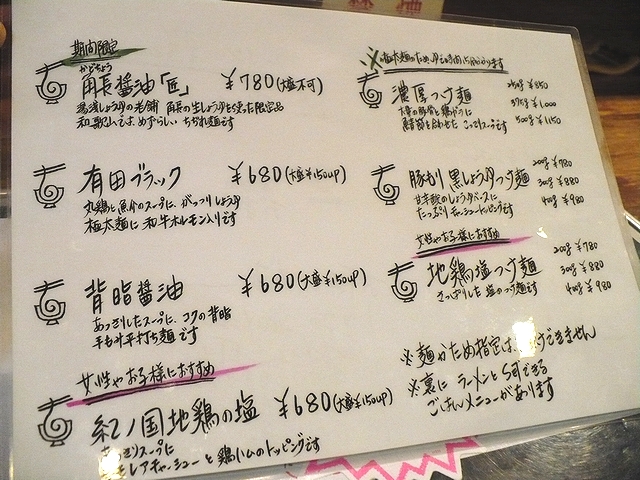 期間限定
かどちょう
角長醤油「匠」 ¥780(大盛不可)
湯浅しょうゆの老舗 角長の生しょうゆを使った限定品
和歌山では、めずらしい ちぢれ麺です
有田ブラック ¥680(大盛¥150UP)
丸鶏と魚介のスープに、がっつりしょうゆ
極太麺に和牛ホルモン入りです
背脂醤油 ¥680(大盛¥150UP)
あっさりしたスープに、コクの背脂
手もみ平打ち麺です
女性やお子様におすすめ
紀ノ国地鶏の塩 ¥680(大盛¥150UP)
スープに
レアチャーシューと鶏ハムのトッピングです
※極太麺のため、ゆで時間
濃厚つけ麺
250g ¥850
375g ¥1,000
500g ¥1,150
合わせた こってりスープです
豚もり黒しょうゆつけ麺
200g ¥780
300g ¥880
400g ¥980
たっぷりチャーシュートッピングです
女性やお子様におすすめ
地鶏塩つけ麺
200g ¥780
300g ¥880
400g ¥980
さっぱりした 塩のつけ麺です
※麺かため指定は、できません
※裏に ラーメンと
ごはんメニューがあります